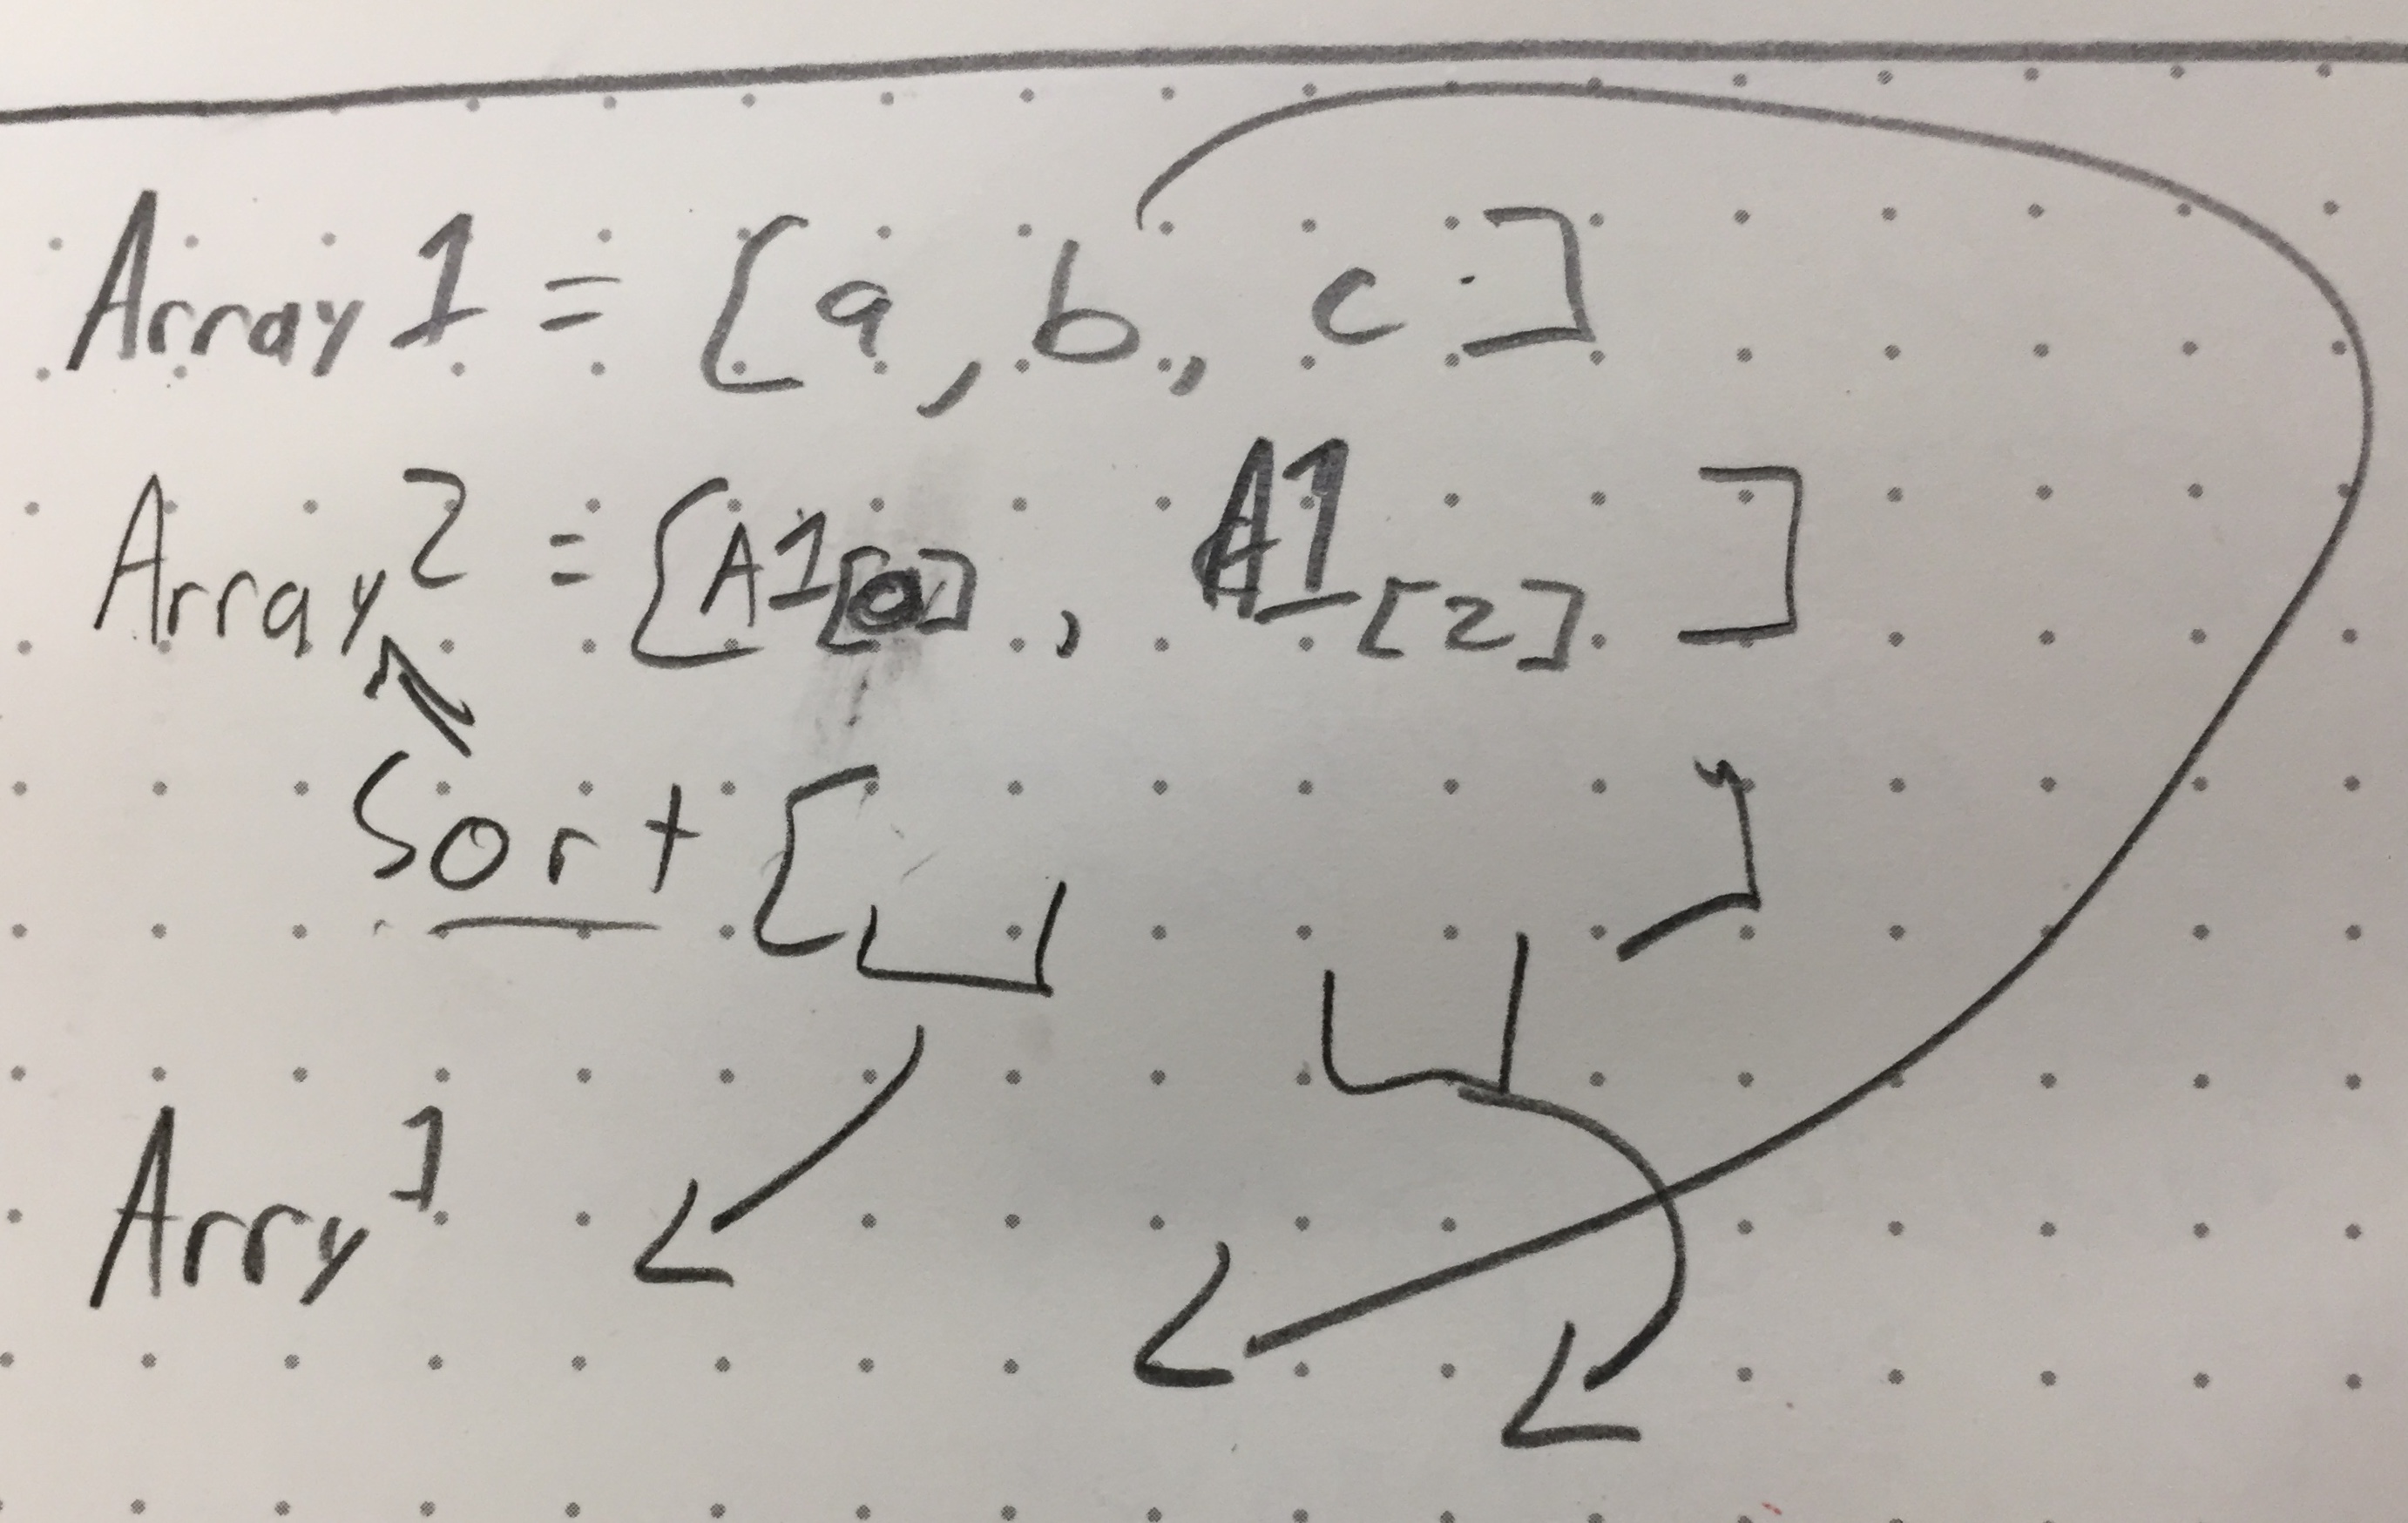 Array 1 = [a, b, c]
Array 2 = [A1[0], A1[2]]
Sort [ ]
Arry 1